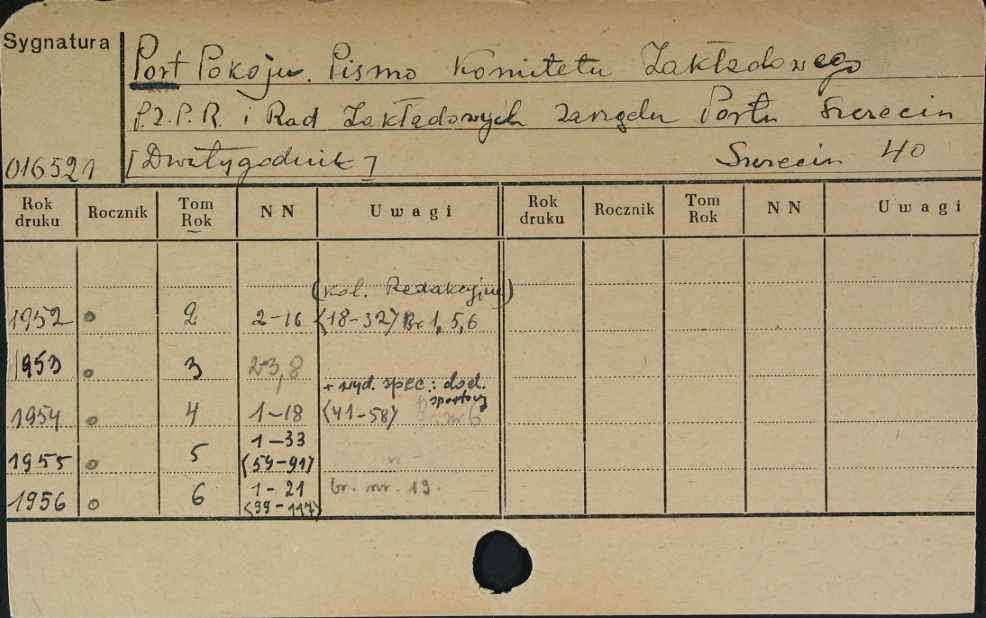 Sygnatura
Port Pokoju. Pismo Komitetu Zakładowego
P.Z.P.R. i Rad Zakładowych Zarządu Portu Szczecin
016521 [Dwutygodnik] Szczecin 40
Rok druku Rocznik Tom Rok N N Uwagi Rok druku Rocznik Tom Rok N N Uwagi
(kol. Redakcyjne)
1952 o 2 2-16 (18-32) Br. 1, 5, 6
1953 o 3 2-3, 8
+ wyd. spec.: dod. sportowy
1954 o 4 1-18 (41-58) nr 6
1955 o 5 1-33 (59-91)
1956 o 6 1-21 (99-117) br. nr. 19.